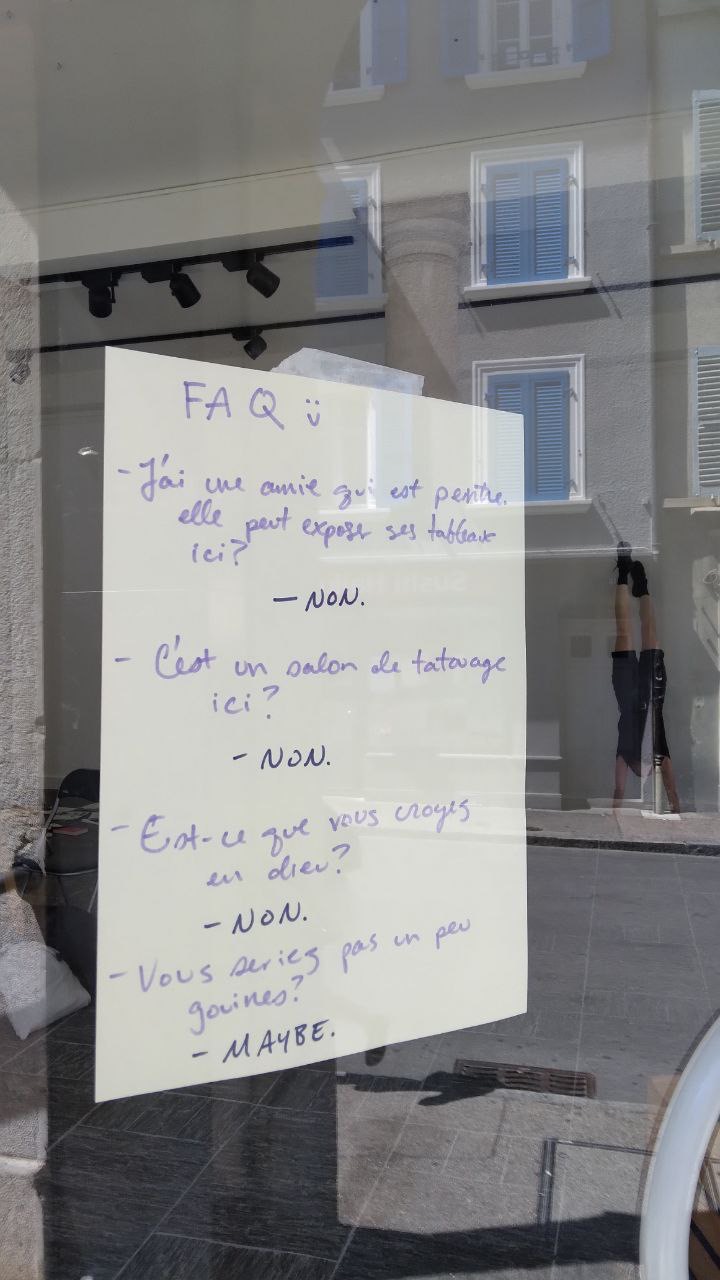 FAQ ü
- J'ai une amie qui est peintre.
elle peut exposer ses tableaux
ici?
- NON.
- C'est un salon de tatouage
ici?
- NON.
- Est-ce que vous croyez
en dieu?
- NON.
- Vous seriez pas un peu
gouines?
- MAYBE.